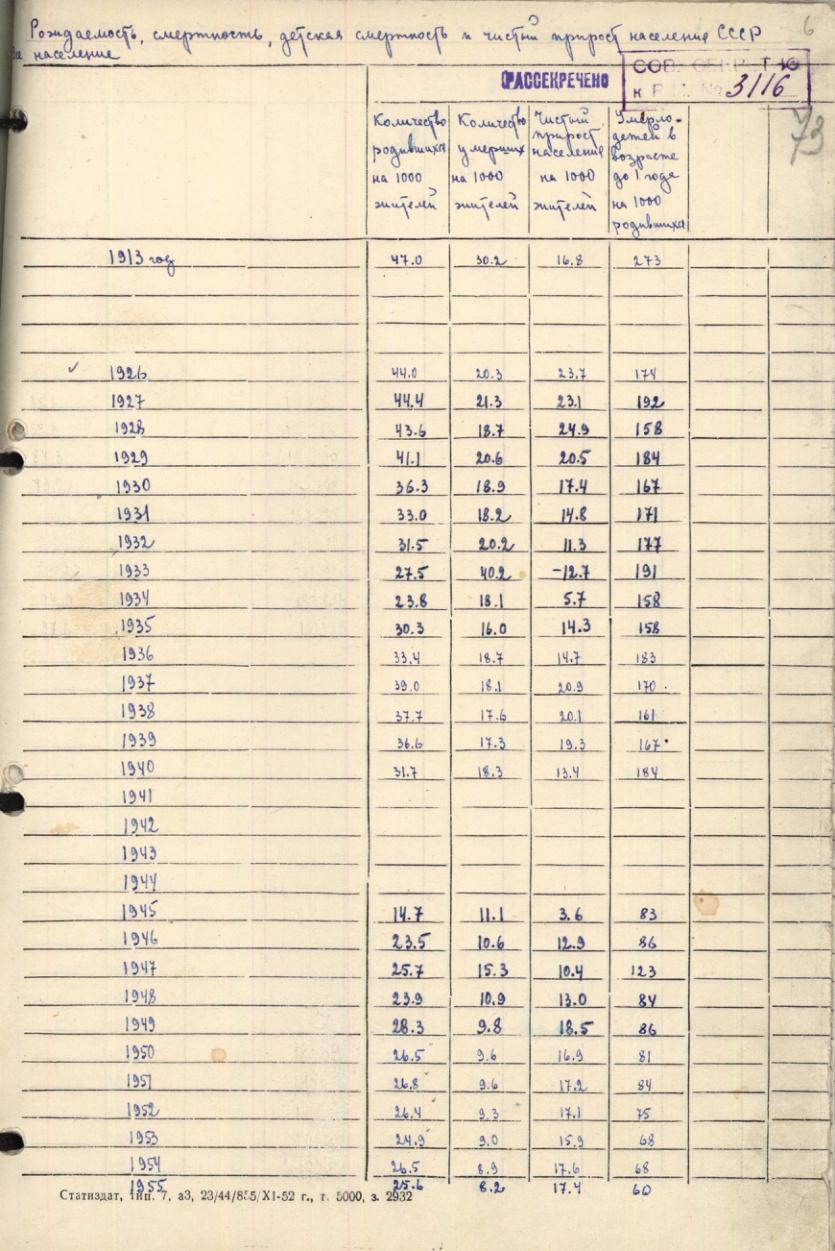 Рождаемость, смертность, детская смертность и чистый прирост населения СССР 6
население
РАССЕКРЕЧЕНО
СОВ. СЕКРЕТНО
к Р. № 3116
73
Количество родившихся на 1000 жителей
Количество умерших на 1000 жителей
Чистый прирост населения на 1000 жителей
Умерло детей в возрасте до 1 года на 1000 родившихся
1913 год 47.0 30.2 16.8 273
1926 44.0 20.3 23.7 174
1927 44.4 21.3 23.1 192
1928 43.6 18.7 24.9 158
1929 41.1 20.6 20.5 184
1930 36.3 18.9 17.4 167
1931 33.0 18.2 14.8 171
1932 31.5 20.2 11.3 177
1933 27.5 40.2 -12.7 191
1934 23.8 18.1 5.7 158
1935 30.3 16.0 14.3 158
1936 33.4 18.7 14.7 183
1937 39.0 18.1 20.9 170
1938 37.7 17.6 20.1 161
1939 36.6 17.3 19.3 167
1940 31.7 18.3 13.4 184
1941
1942
1943
1944
1945 14.7 11.1 3.6 83
1946 23.5 10.6 12.9 86
1947 25.7 15.3 10.4 123
1948 23.9 10.9 13.0 84
1949 28.3 9.8 18.5 86
1950 26.5 9.6 16.9 81
1951 26.8 9.6 17.2 84
1952 26.4 9.3 17.1 75
1953 24.9 9.0 15.9 68
1954 26.5 8.9 17.6 68
1955 25.6 8.2 17.4 60
Статиздат, тип. 7, а3, 23/44/855/XI-52 г., т. 5000, з. 2932